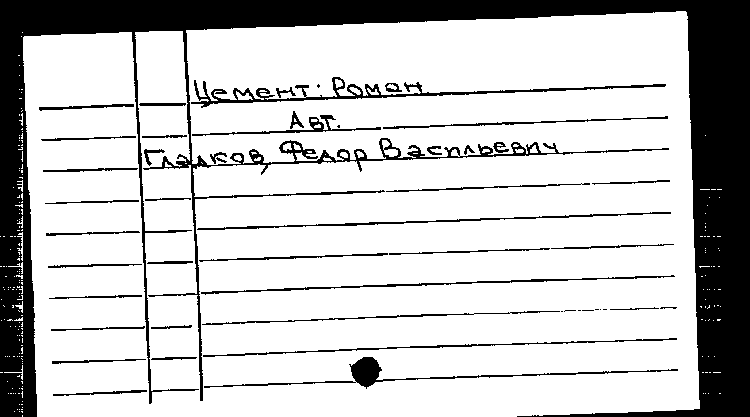 Цемент: Роман
Авт.
Гладков, Федор Васильевич